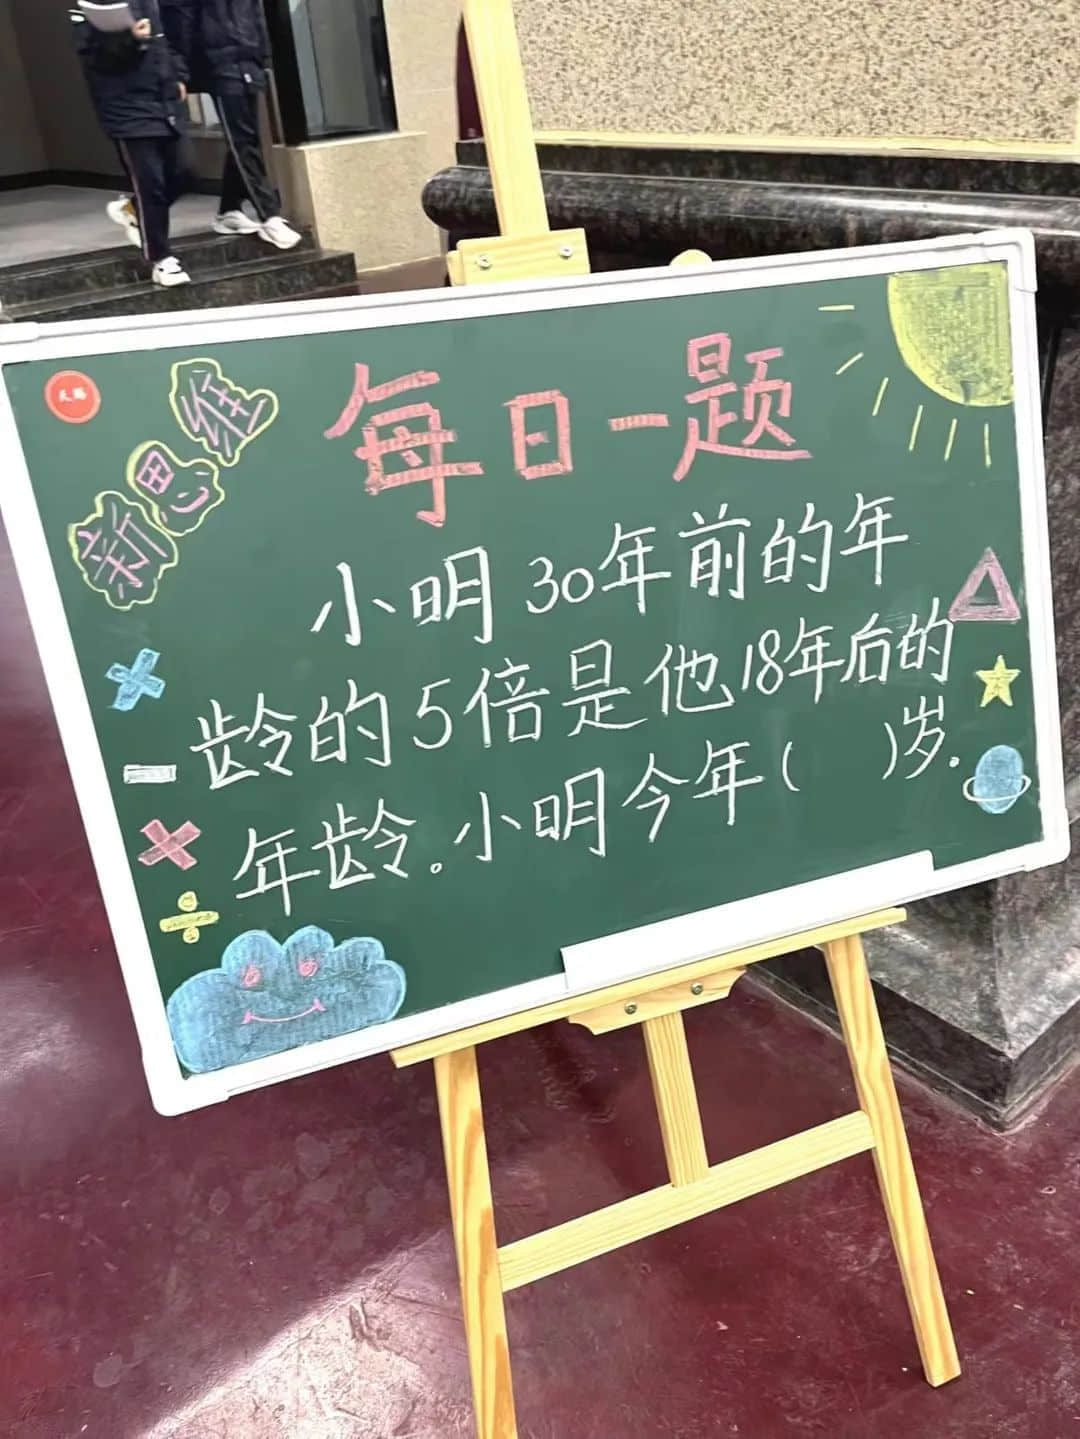 天赐
新思维
每日一题
小明30年前的年
龄的5倍是他18年后的
年龄。小明今年(  )岁.